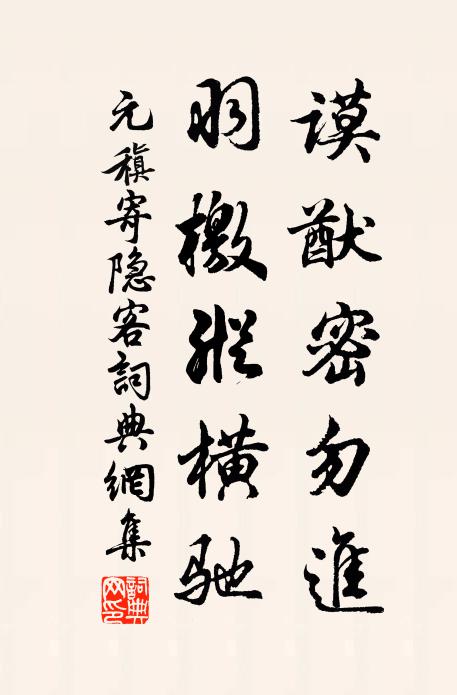 謨猷密勿進
羽檄縱橫馳
元稹寄隐客詞典網集
詞典網印